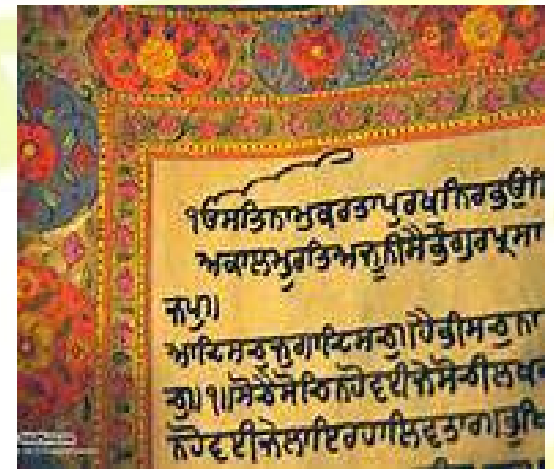 ੧ੳਸਤਿਨਾਮੁਕਰਤਾਪੁਰਖੁਨਿਰਭਉਨਿ
ਅਕਾਲਮੂਰਤਿਅਜੂਨੀਸੈਭੰਗੁਰਪ੍ਰਸਾ
ਜਪੁ॥
ਆਦਿਸਚੁਜੁਗਾਦਿਸਚੁ॥ਹੈਭੀਸਚੁਨਾ
ਚੁ॥੧॥ਸੋਚੈਸੋਚਿਨਹੋਵਈਜੇਸੋਚੀਲਖ
ਨਹੋਵਈਜੇਲਾਇਰਹਾਲਿਵਤਾਰ॥ਭੁਖਿ